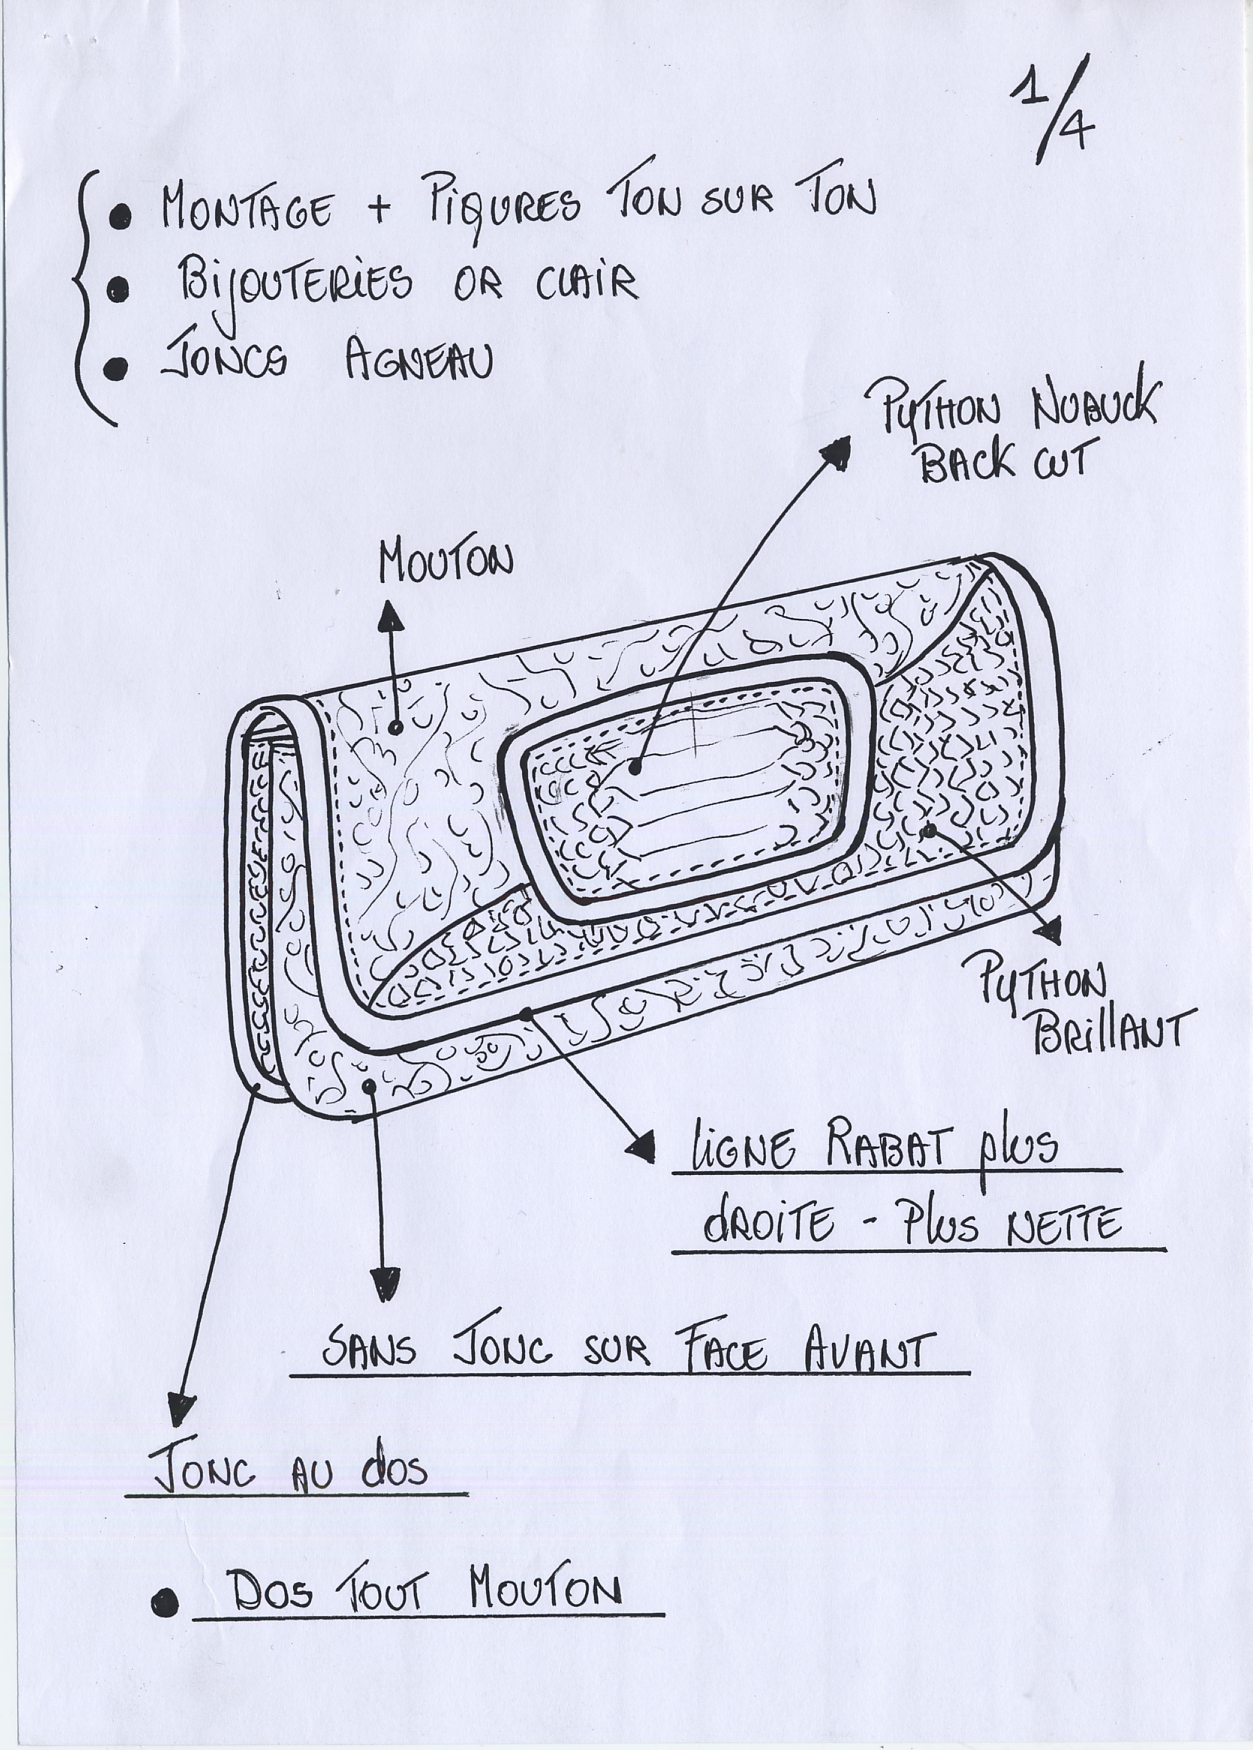 1/4
• MONTAGE + PIQURES TON SUR TON
• BIJOUTERIES OR CLAIR
• JONCS AGNEAU
PYTHON NUBUCK
BACK CUT
MOUTON
PYTHON
BRILLANT
LIGNE RABAT plus
dROITE - Plus NETTE
SANS JONC SUR FACE AVANT
JONC AU dOS
• DOS TOUT MOUTON